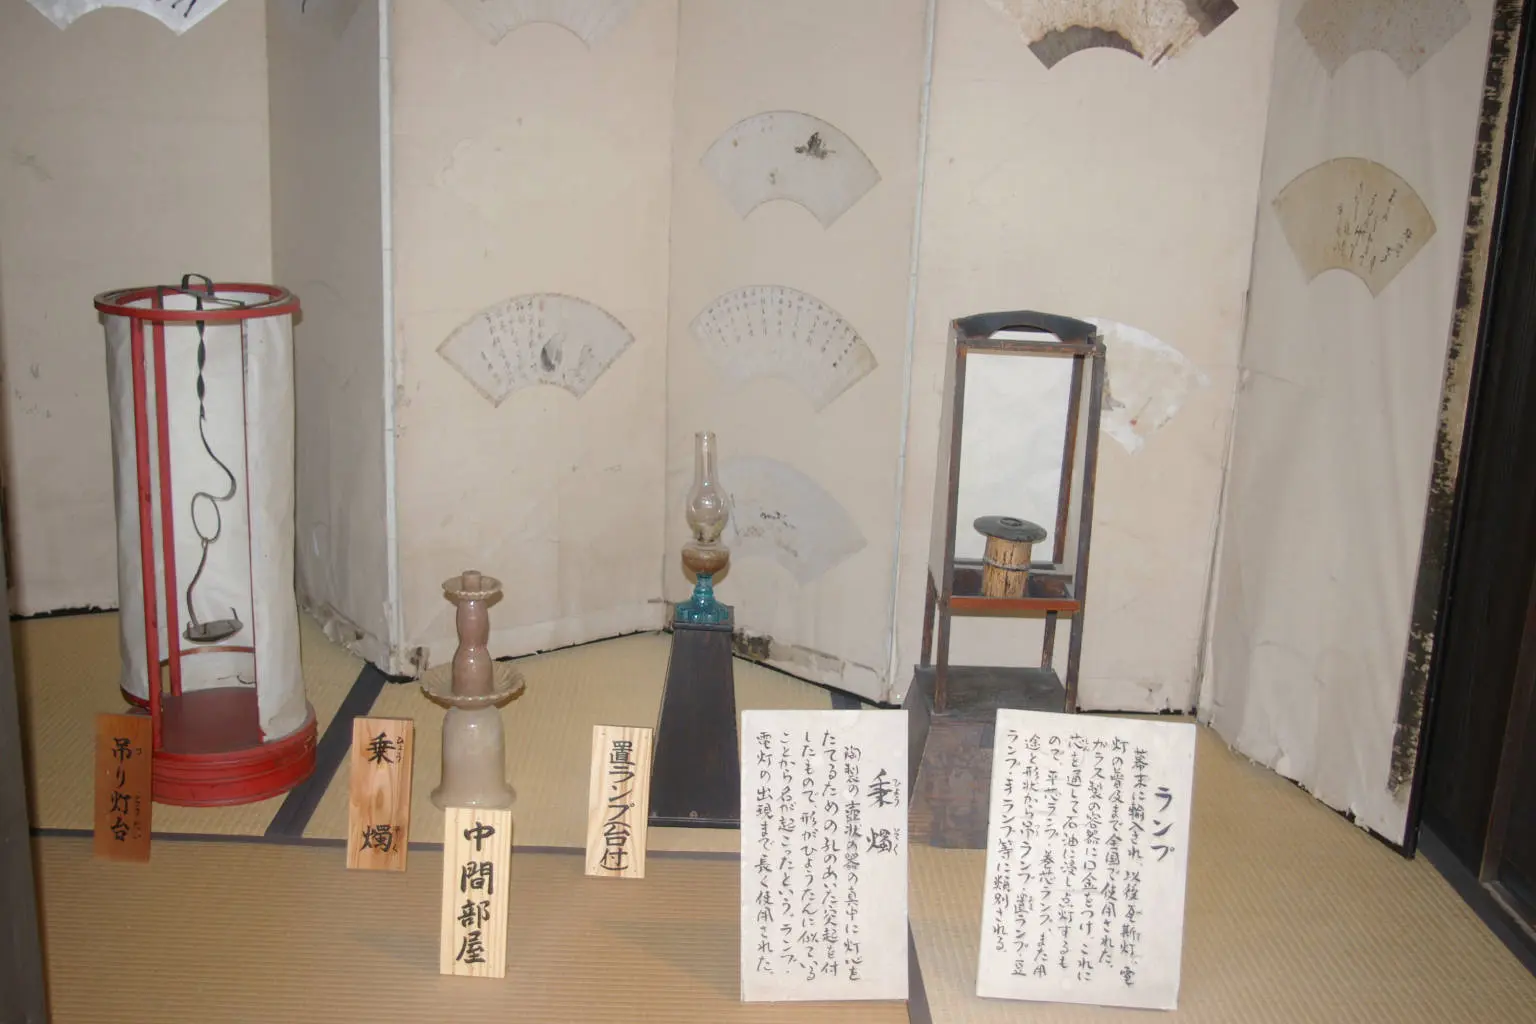 吊り灯台
乗燭
中間部屋
置ランプ(台付)
乗燭
陶製の壺状の器の真中に灯心を
たてるための孔のあいた突起を付
したもので、形がひょうたんに似ている
ことから名が起こったという。ランプ・
電灯の出現まで長く使用された。
ランプ
幕末に輸入され、以後瓦斯灯、電
灯の普及まで全国で使用された。
ガラス製の容器に口金をつけ、これに
芯を通して石油に浸し点灯するも
ので、平芯ランプ、巻芯ランプ、また用
途と形状から吊ランプ・置ランプ・豆
ランプ・手ランプ等に類別される。